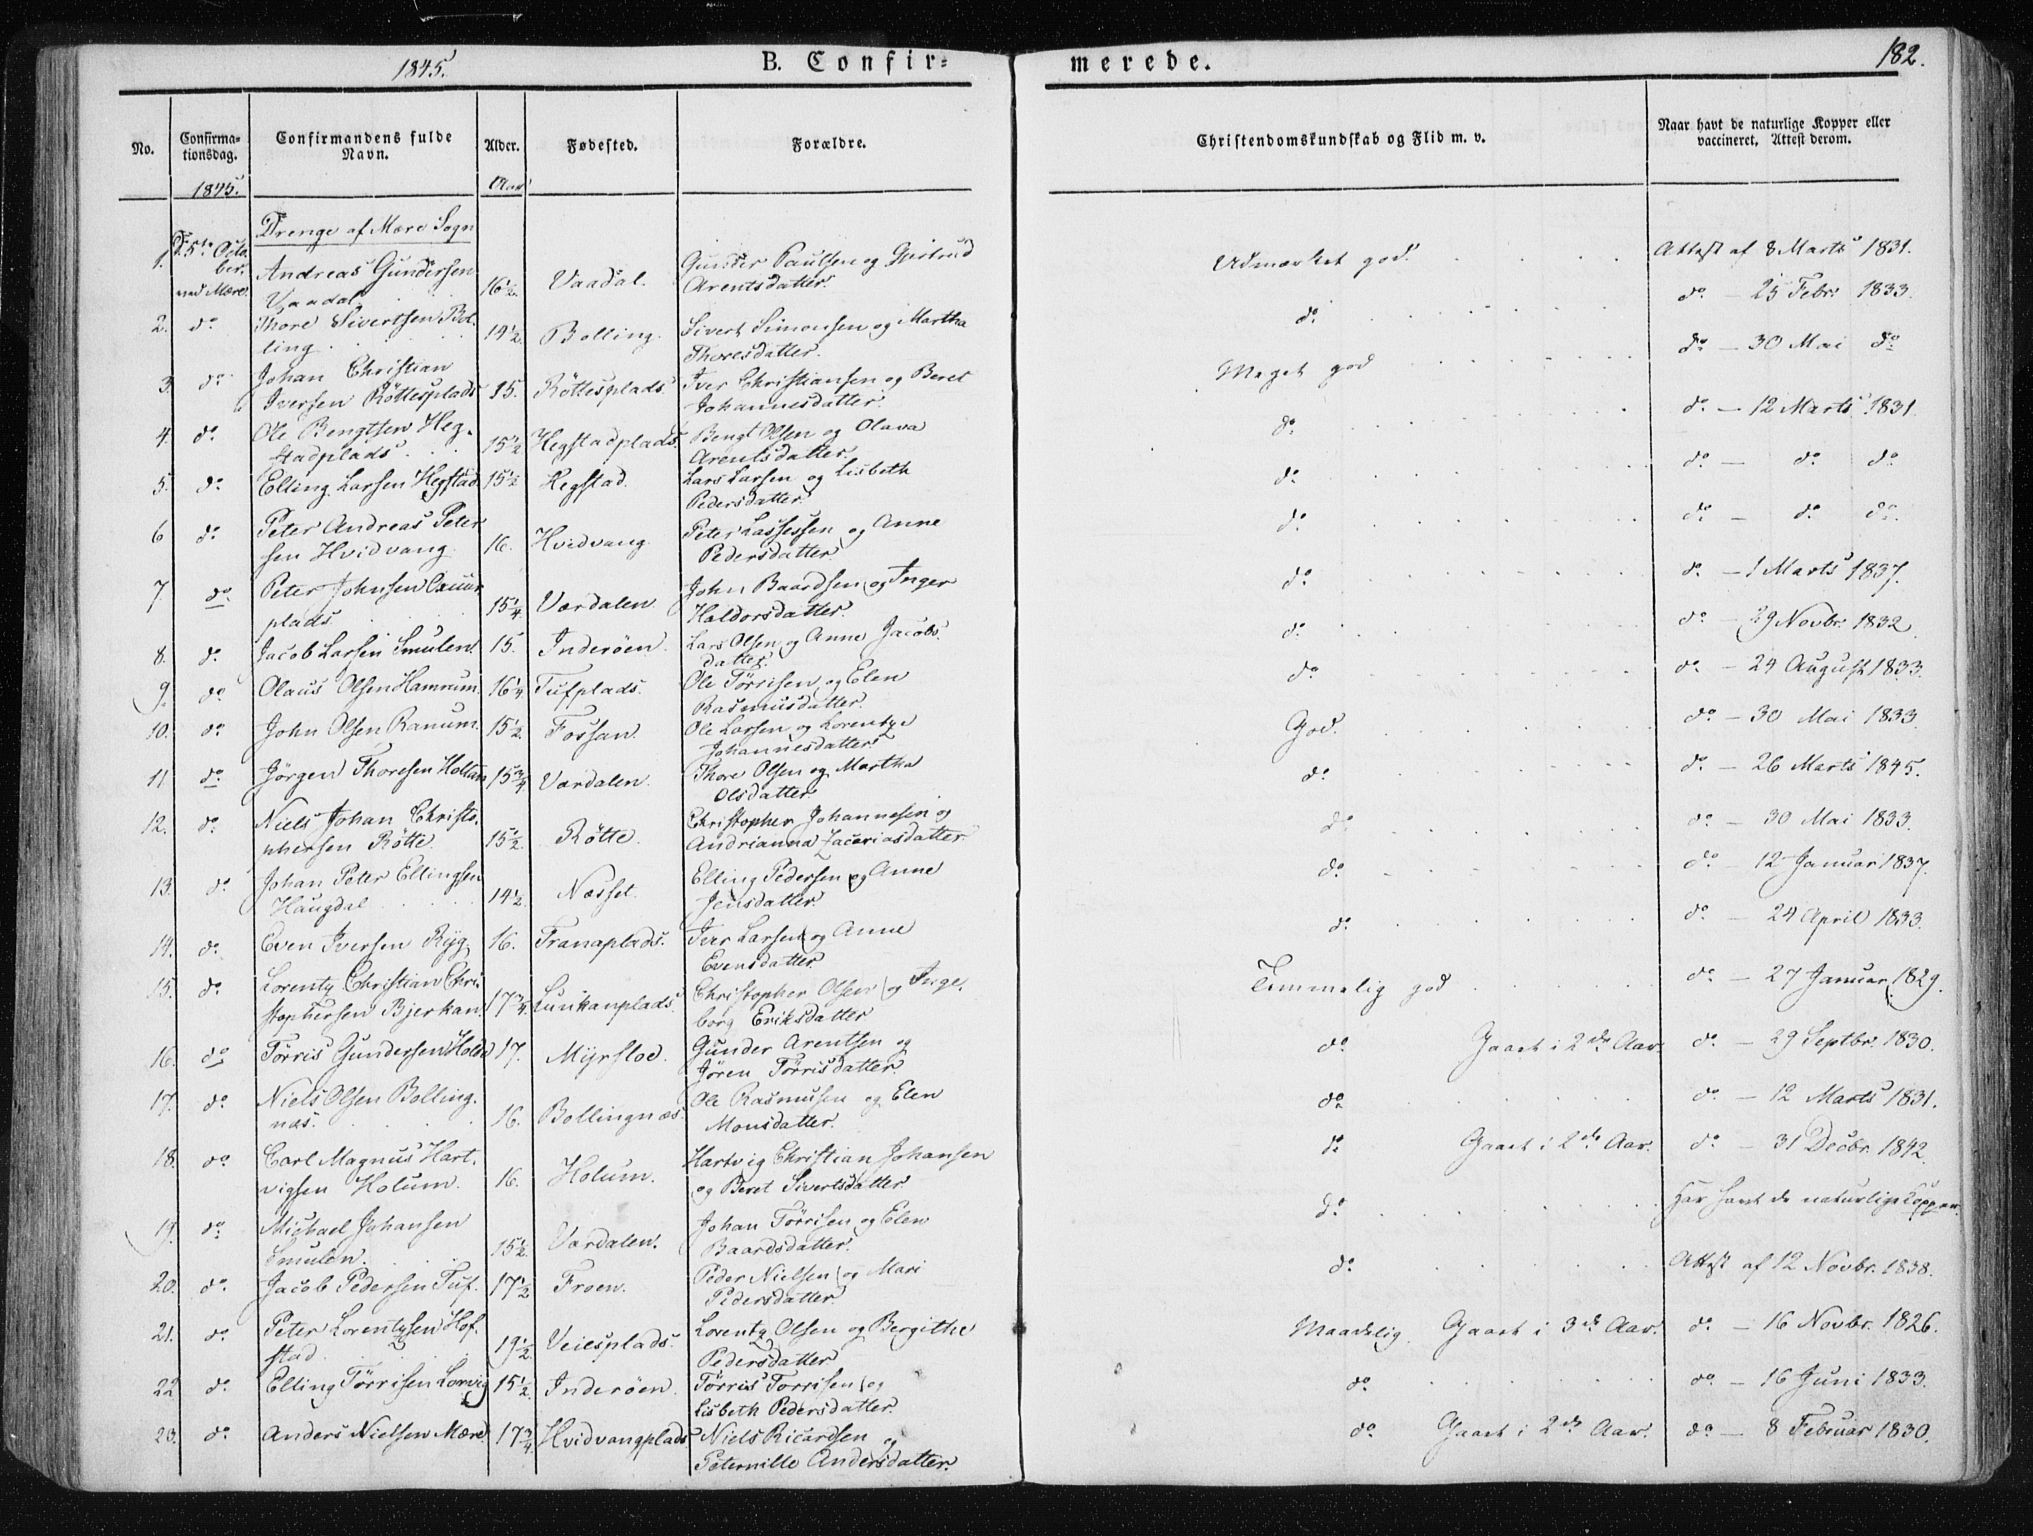 1845.
B. Confir=
merede.
182.
No.
Confirma=
tionsdag.
Confirmandens fulde
Navn.
Alder.
Fødested.
Forældre.
Christendomskundskab og Flid m. v.
Naar havt de naturlige Kopper eller
vaccineret, Attest derom.
1845.
Aar
Drenge af Mære Sogn
1. D. 5te Octo-
ber.
ved Mære.
Andreas Gundersen
Vaadal 16½. Vaadal. Gunder Paulsen og Gjertrud
Arentsdatter. Udmærket god. Attest af 8 Marts 1831.
2. do Thore Sivertsen Bol-
ling 14½ Bolling. Sivert Simonsen og Martha
Thoresdatter. do do - 25 Febr. 1833.
3. do Johan Christian
Iversen Röttesplads 15. Röttesplads. Iver Christiansen og Beret
Johannesdatter. Meget god do - 30 Mai do
4. do Ole Bengtsen Heg-
stadplads 15½ Hegstadplads. Bengt Olsen og Olava
Arentsdatter. do do - 12 Marts 1831
5. do Elling Larsen Hegstad 15½ Hegstad. Lars Larsen og Lisbeth
Pedersdatter do do - do do
6 do Peter Andreas Peter
sen Hvidvang 16. Hvidvang. Peter Lassessen og Anne
Pedersdatter do do - do do.
7 do Peter Johnsen
plads 15¼ Værdalen. John Baardsen og Inger
Haldorsdatter. do do - 1 Marts 1837.
8. do Jacob Larsen Smulen 15. Inderöen. Lars Olsen og Anne Jacobs-
datter. do do - 29 Novbr. 1832.
9. do Olaus Olsen Hamrum 16¼ Tufplads. Ole Törrisen og Elen
Rasmusdatter. do do - 24 August 1833.
10. do John Olsen Ranum. 15½. Fossan. Ole Larsen og Lorentze
Johannesdatter. God. do - 30 Mai 1833.
11 do Jörgen Thoresen Holtan 15¾ Værdalen. Thore Olsen og Martha
Olsdatter. do do - 26 Marts 1845.
12. do Niels Johan Christo-
phersen Rötte. 15½. Rötte. Christopher Johannesen og
Andrianna Zacariasdatter. do do - 30 Mai 1833.
13 do Johan Peter Ellingsen
Haugdal 14½. Næsset. Elling Pedersen og Anne
Jensdatter. do do - 12 Januar 1837.
14. do Even Iversen Ryg 16. Tranaplads. Iver Larsen og Anne
Evensdatter. do do - 24 April 1833.
15. do Lorentz Christian Chri-
stophersen Bjerkan. 17¾ Lunkanplads. Christopher Olsen og Inge-
borg Eriksdatter Temmelig god do - 27 Januar 1829.
16. do Törris Gundersen Holm 17. Myrstoe. Gunder Arentsen og
Jören Törrisdatter. do Gaaet i 2de Aar. do - 29 Septbr. 1830.
17. do Niels Olsen Bolling-
næs. 16. Bollingnæs. Ole Rasmusen og Elen
Monsdatter. do do - 12 Marts 1831.
18. do Carl Magnus Hart-
vigsen Holum. 16. Holum. Hartvig Christian Johansen
og Beret Sivertsdatter do Gaaet i 2de Aar. do - 31 Decbr. 1842.
19. do Michael Johansen
Smulen. 15½. Værdalen. Johan Törrisen og Elen
Baardsdatter. do Har havt de naturlige Kopper.
20. do Jacob Pedersen Tuf. 17½ Froen. Peder Nielsen og Mari
Pedersdatter. do Attest af 12 Novbr. 1838.
21. do Peter Lorentzsen Hof-
stad. 19½ Veiesplads. Lorentz Olsen og Bergithe
Pedersdatter Maadelig. Gaaet i 3de Aar. do - 16 Novbr. 1826.
22 do Elling Törrisen Lorvig 15½. Inderöen. Törris Törrisen og
Lisbeth Pedersdatter. do do - 16 Juni 1833.
23. do Anders Nielsen Mære. 17¾ Hvidvangplads Niels Ricardsen og
Peternille Andersdatter. do Gaaet i 2de Aar. do - 8 Februar 1830.